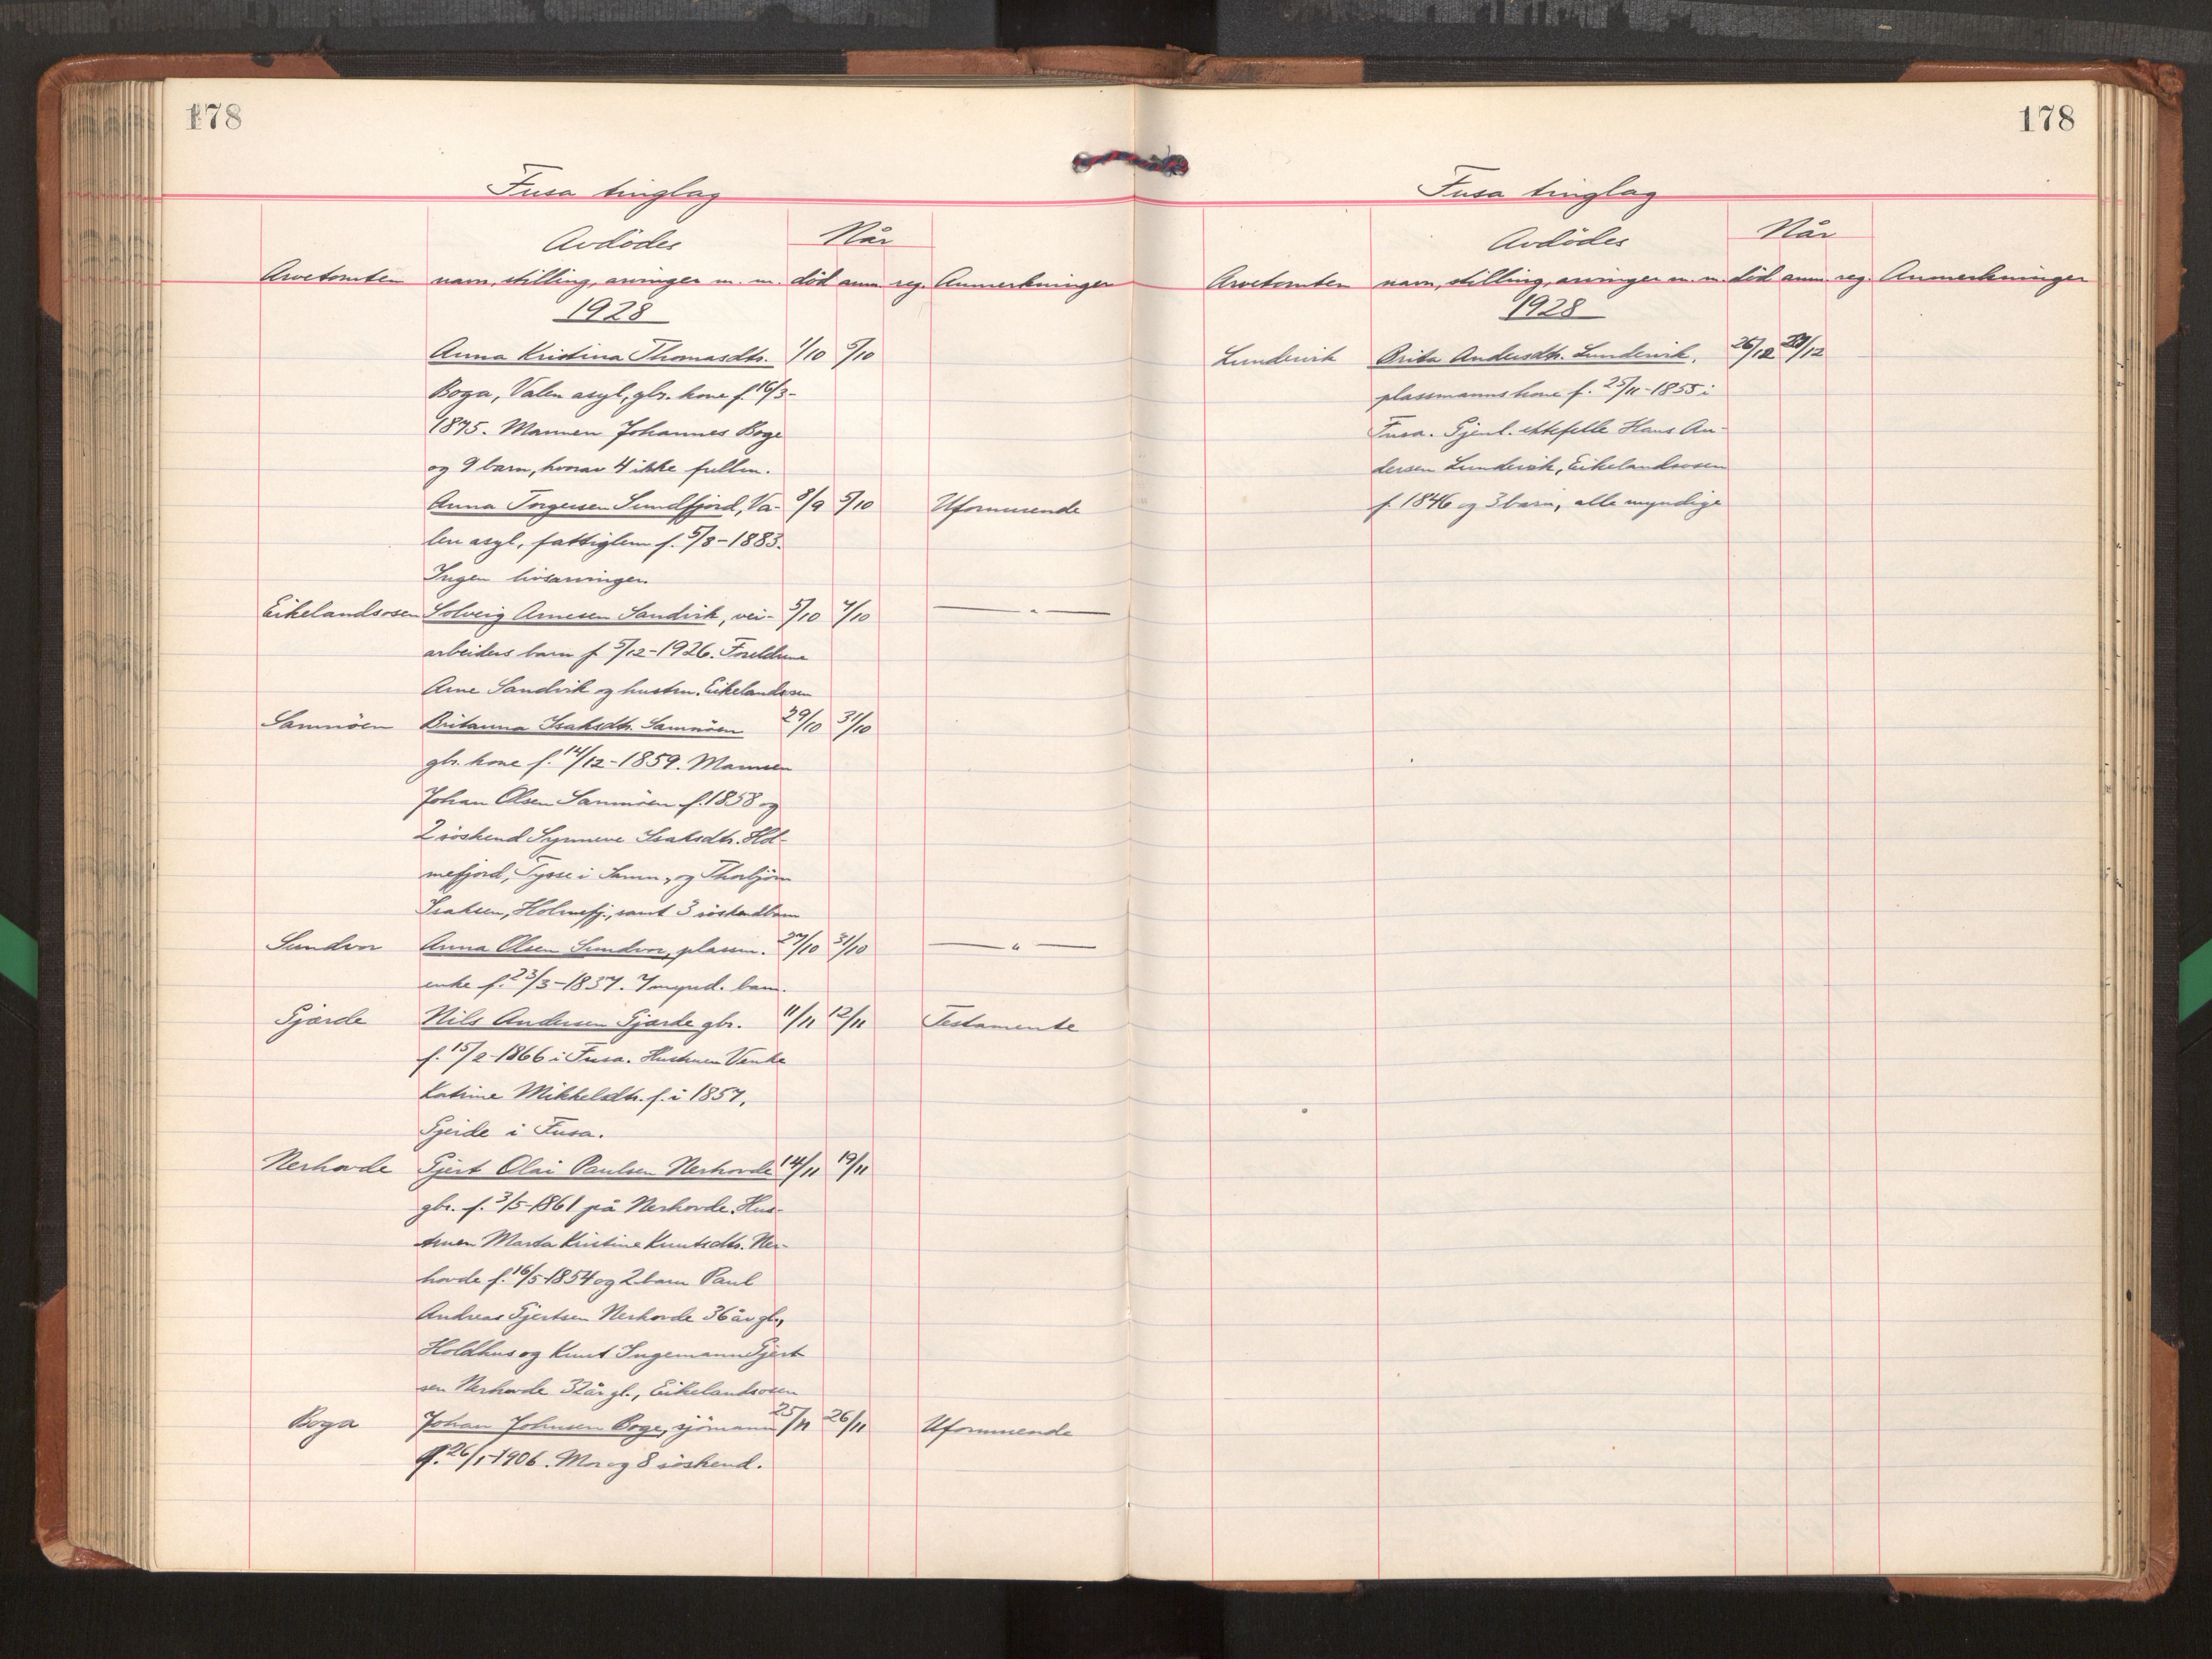 178
Fusa tinglag
Avdödes Når
Arvetomten navn, stilling, arvinger m. m. död anm. reg. Anmerkninger
1928
Anna Kristina Thomasdtr. 1/10 5/10
Boga, Valen asyl, gbr. kone f. 16/3-
1875. Mannen Johannes Boge
og 9 barn, hvorav 4 ikke fullm.
Anna Torgersen Sundfjord, Va- 8/9 5/10 Uformuende
len asyl, fattiglem f. 5/8-1883.
Ingen livsarvinger.
Eikelandsosen Solveig Arnesen Sandvik, vei- 5/10 7/10 — " —
arbeiders barn f 5/12-1926. Foreldrene
Arne Sandvik og hustru. Eikelandsosen
Samnöen Britanna Isaksdtr. Samnöen 29/10 31/10
gbr. kone f. 14/12-1859. Mannen
Johan Olsen Samnöen f. 1858 og
2 söskend Synneve Isaksdtr. Hol-
mefjord, Tysse i Samn., og Thorbjörn
Isaksen, Holmefj., samt 3 söskendbarn
Sundvor Anna Olsen Sundvor, plassm. 27/10 31/10 — " —
enke f. 23/3-1837. 7 mynd. barn.
Gjærde Nils Andersen Gjærde gbr. 11/11 12/11 Testamente
f. 15/2-1866 i Fusa. Hustruen Venke
Katrine Mikkelsdtr. f. i 1857,
Gjerde i Fusa.
Nerhovde Gjert Olai Paulsen Nerhovde 14/11 19/11
gbr. f. 3/5-1861 på Nerhovde. Hus-
truen Marta Kristine Knutsdtr. Ner-
hovde f. 16/5-1854 og 2 barn Paul
Andreas Gjertsen Nerhovde 36 år gl.,
Holdhus og Knut Ingemann Gjert
sen Nerhovde 32 år gl., Eikelandsosen
Boga Johan Johnsen Boge, sjömann 25/11 26/11 Uformuende
f. 26/1-1906. Mor og 8 söskend.
178
Fusa tinglag
Avdödes Når
Arvetomten navn, stilling, arvinger m. m. död anm. reg. Anmerkninger
1928
Lundervik Brita Andersdtr. Lundervik, 26/12 29/12
plassmannskone f. 25/11-1855 i
Fusa. Gjenl. ektefelle Hans An-
dersen Lundervik, Eikelandsosen
f. 1846 og 3 barn, alle myndige